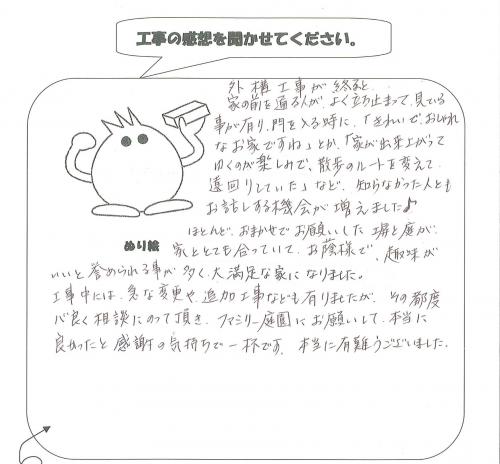 工事の感想を聞かせてください。
外構工事が終ると、
家の前を通る人が、よく立ち止まって、見ている
事が有り、門を入る時に、「きれいで、おしゃれ
なお家ですね」とか、「家が出来上がって
ゆくのが楽しみで、散歩のルートを変えて、
遠回りしていた」など、知らなかった人とも
お話しする機会が増えました♪
ほとんど、おまかせでお願いした塀と庭が、
ぬり絵
家ととても合っていて、お蔭様で、趣味が
いいと誉められる事が多く、大満足な家になりました。
工事中には、急な変更や、追加工事なども有りましたが、その都度
心良く相談にのって頂き、ファミリー庭園にお願いして、本当に
良かったと感謝の気持ちで一杯です。本当に有難うございました。